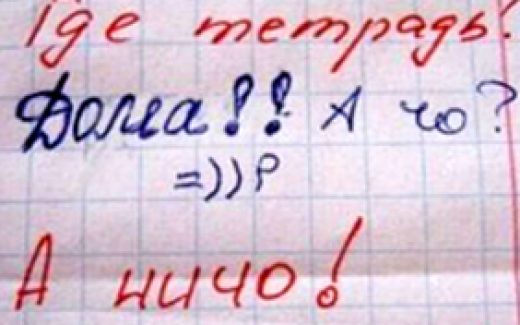 Где тетрадь?
Дома!! А чо?
=))P
А ничо!